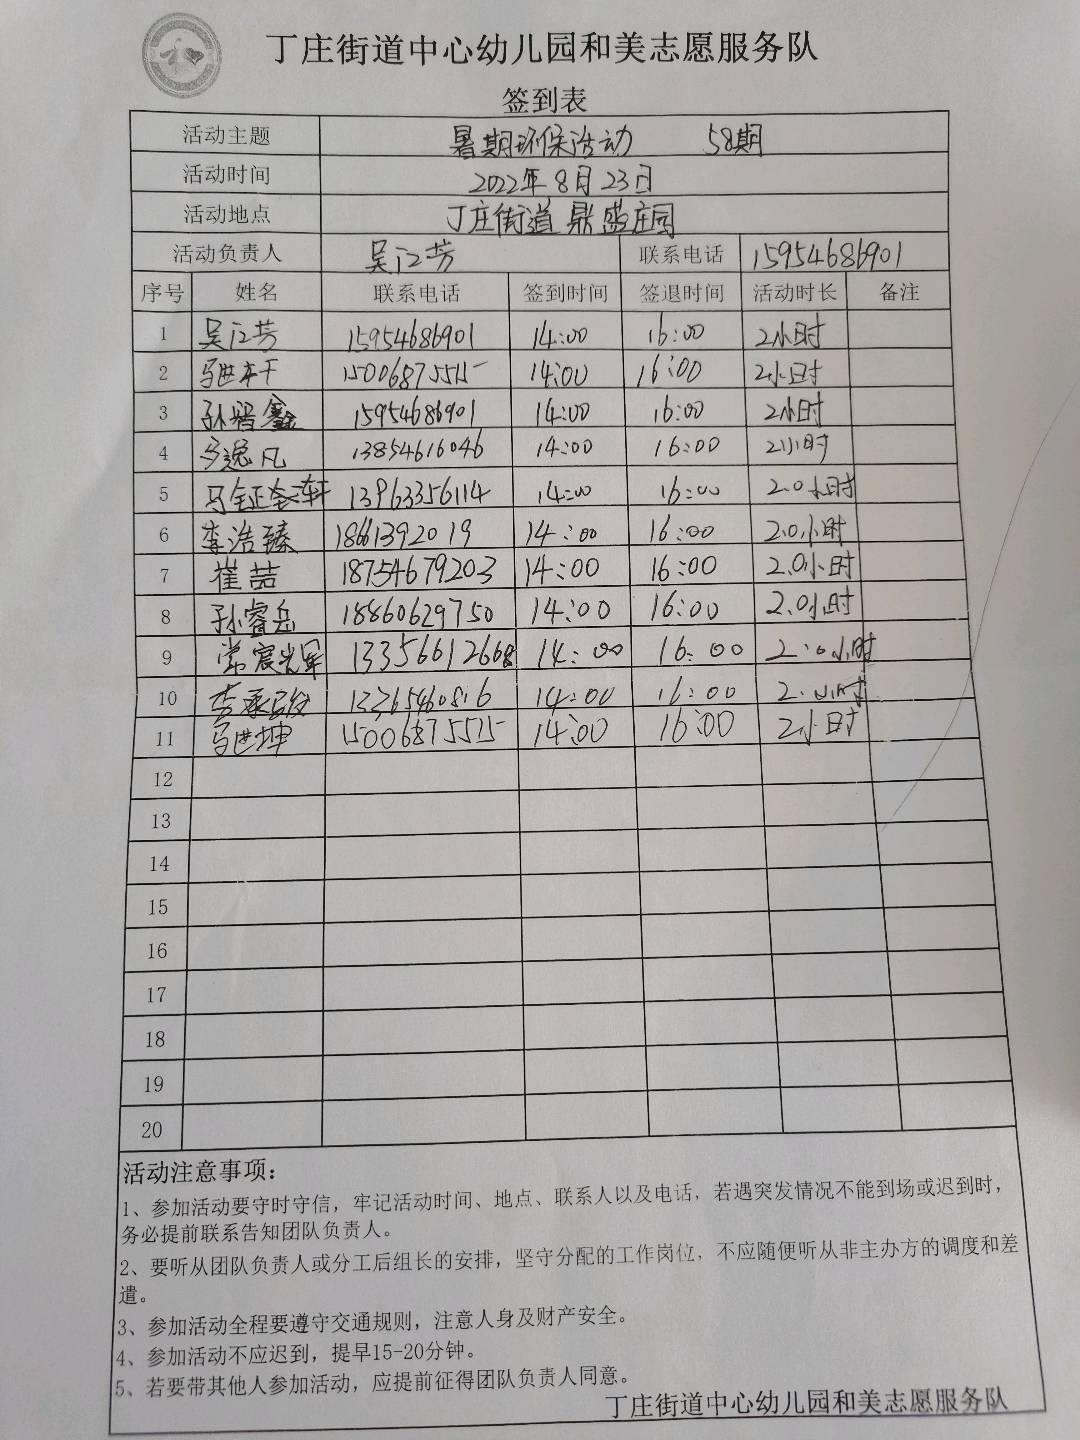 丁庄街道中心幼儿园和美志愿服务队
签到表
活动主题 暑期环保活动 58期
活动时间 2022年8月23日
活动地点 丁庄街道鼎盛庄园
活动负责人 吴江芳 联系电话 15954686901
序号 姓名 联系电话 签到时间 签退时间 活动时长 备注
1 吴江芳 15954686901 14:00 16:00 2小时
2 马世轩 15006875515 14:00 16:00 2小时
3 孙晧鑫 15954686901 14:00 16:00 2小时
4 马逸凡 13854616046 14:00 16:00 2小时
5 马钰轩 13963356114 14:00 16:00 2.0小时
6 李浩臻 18661392019 14:00 16:00 2.0小时
7 崔喆 18754679203 14:00 16:00 2.0小时
8 孙睿岳 18860629750 14:00 16:00 2.0小时
9 常宸 13356612668 14:00 16:00 2.0小时
10 李承 13365460816 14:00 16:00 2.小时
11 马世坤 15006875515 14:00 16:00 2小时
12
13
14
15
16
17
18
19
20
活动注意事项：
1、参加活动要守时守信，牢记活动时间、地点、联系人以及电话，若遇突发情况不能到场或迟到时，
务必提前联系告知团队负责人。
2、要听从团队负责人或分工后组长的安排，坚守分配的工作岗位，不应随便听从非主办方的调度和差
遣。
3、参加活动全程要遵守交通规则，注意人身及财产安全。
4、参加活动不应迟到，提早15-20分钟。
5、若要带其他人参加活动，应提前征得团队负责人同意。
丁庄街道中心幼儿园和美志愿服务队